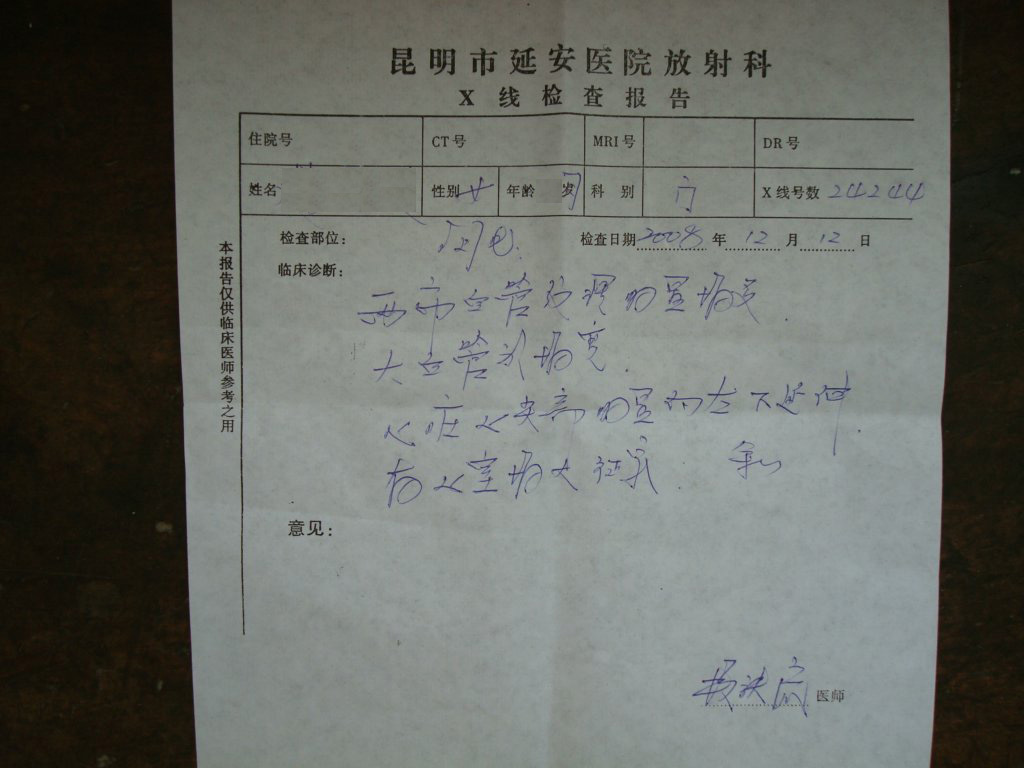 昆明市延安医院放射科
X 线检查报告
住院号 CT号 MRI号 DR号
姓名 性别 女 年龄 岁 科别 门 X线号数 24244
检查部位: 检查日期 2008 年 12 月 12 日
临床诊断:
两肺血管纹理明显增多.
大血管影增宽.
心尖 明显向左下延伸.
心室增大征象.
意见:
医师
本报告仅供临床医师参考之用